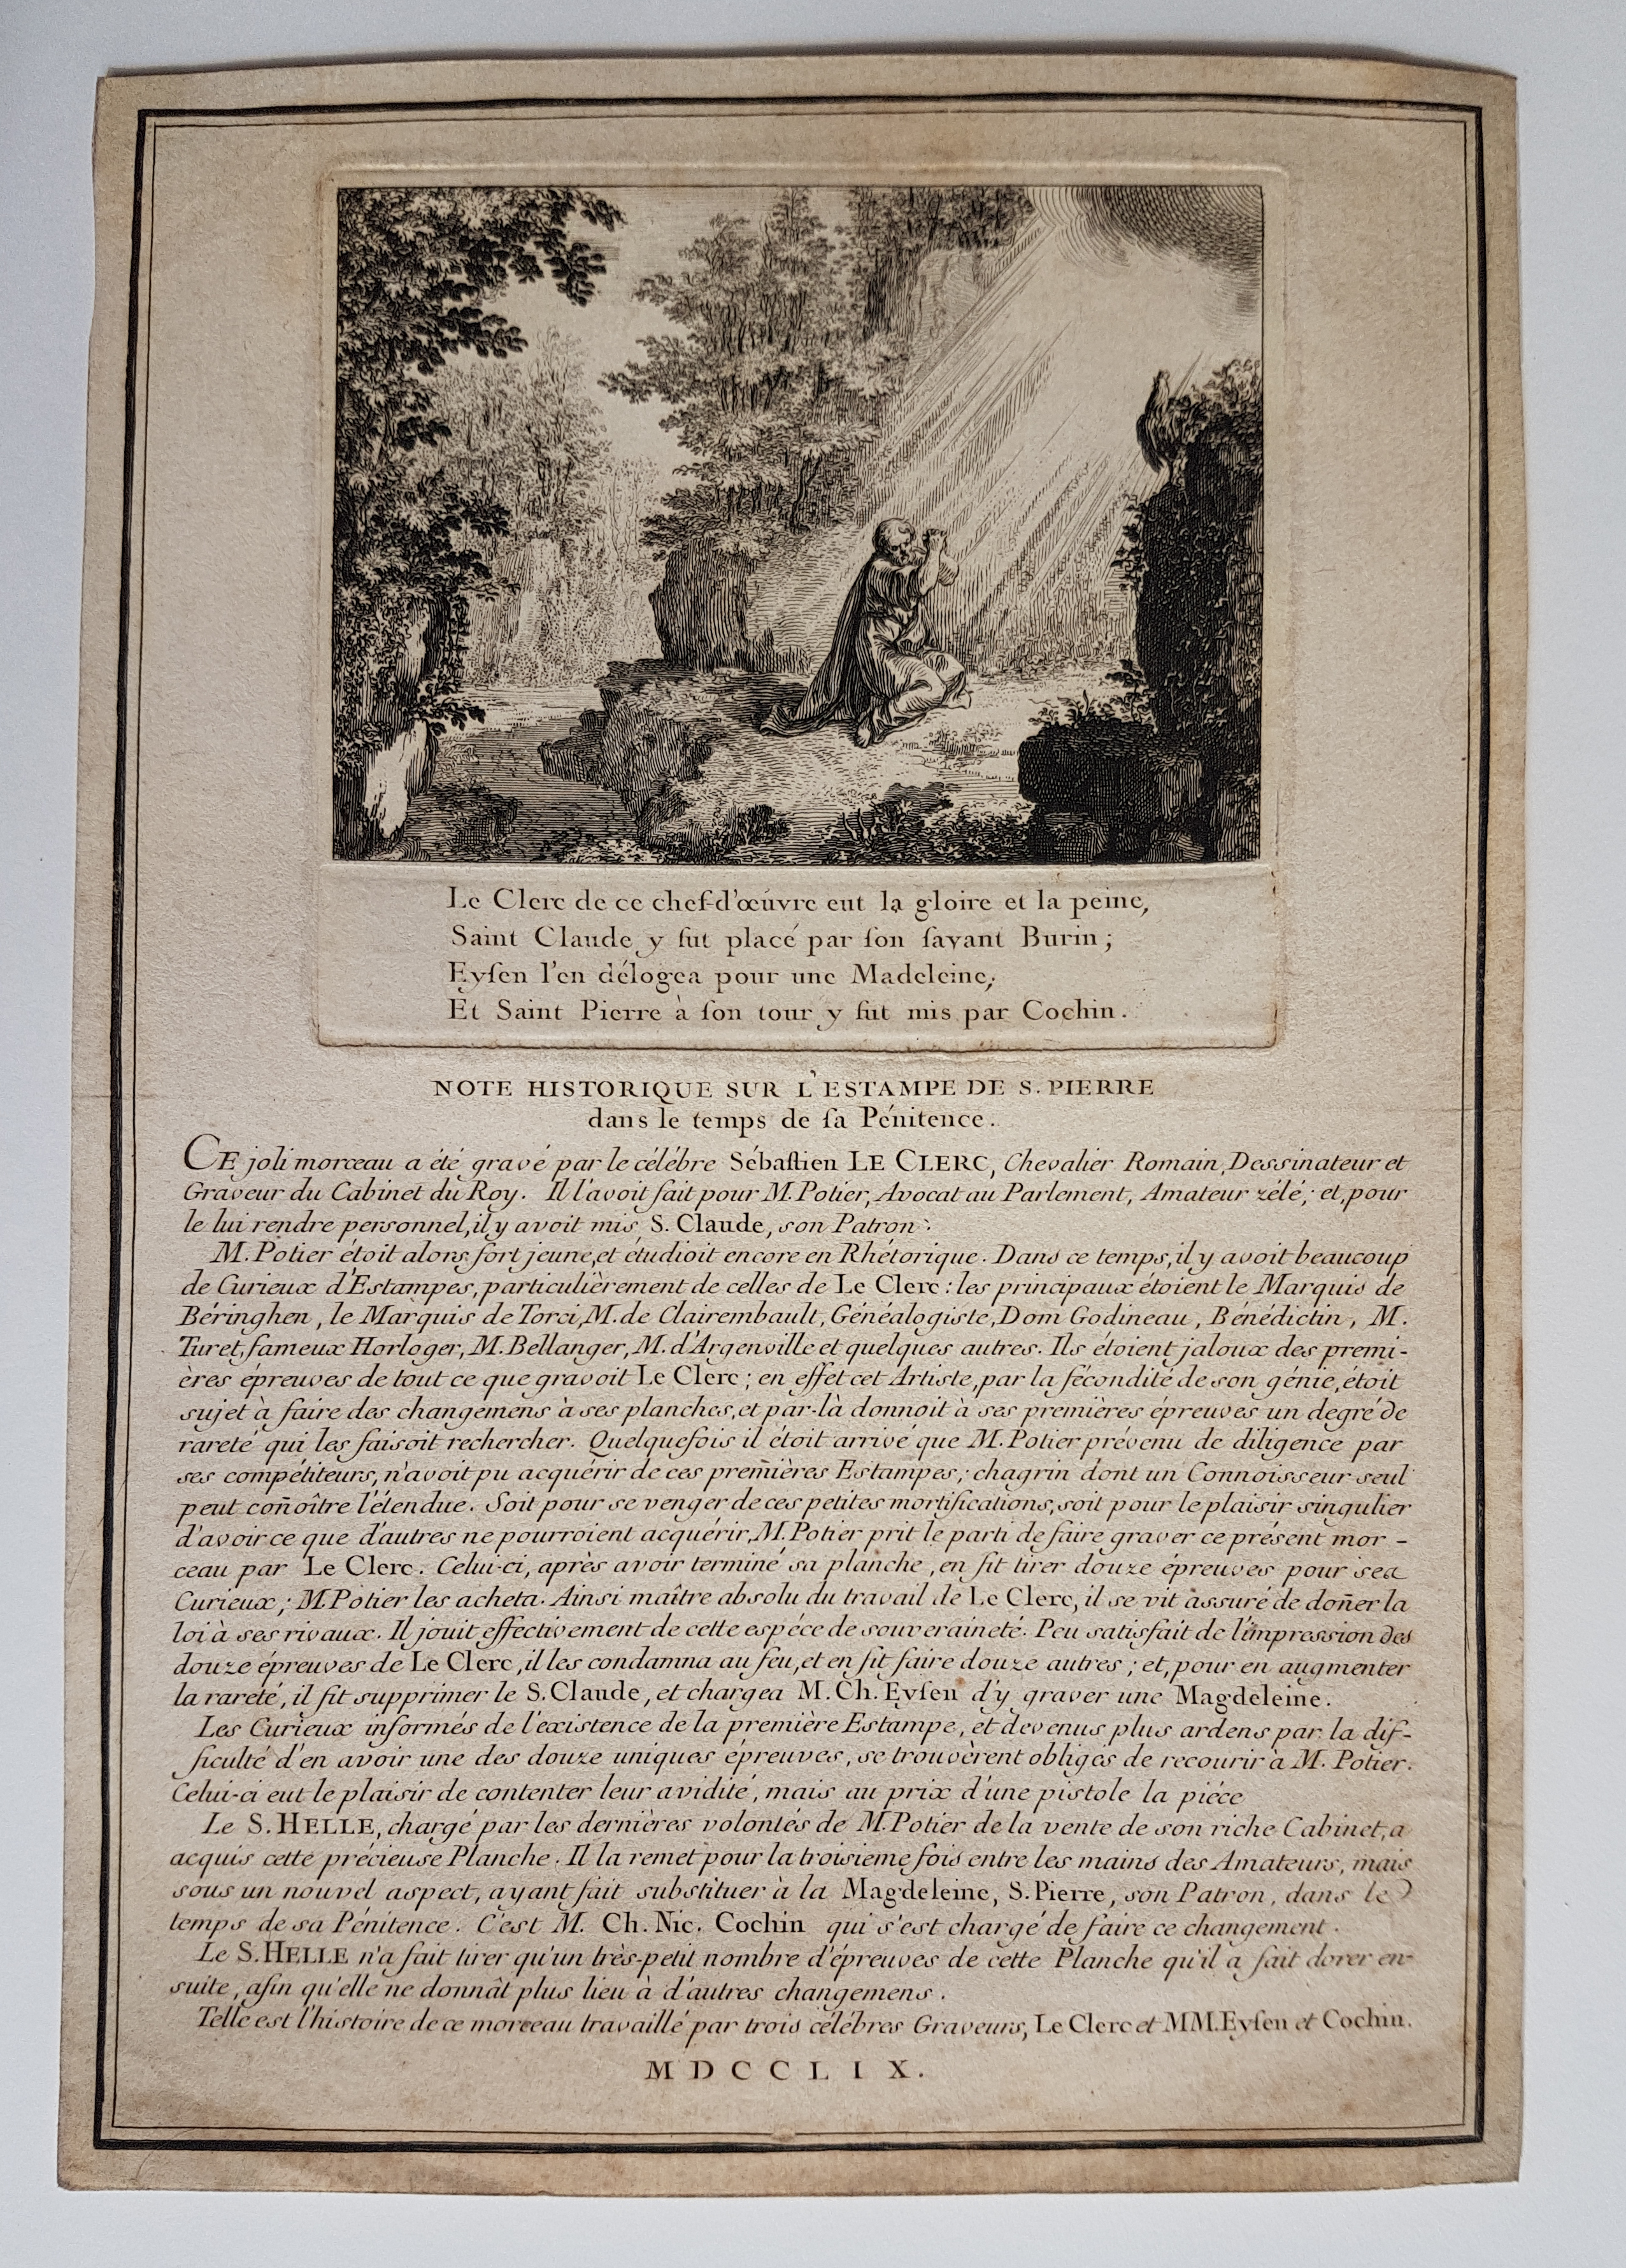 Le Clerc de ce chef-d'œuvre eut la gloire et la peine,
Saint Claude y fut placé par ſon ſavant Burin ;
Eyſen l'en délogea pour une Madeleine,
Et Saint Pierre à ſon tour y fut mis par Cochin.
NOTE HISTORIQUE SUR L'ESTAMPE DE S. PIERRE
dans le temps de ſa Pénitence.
CE joli morceau a été gravé par le célébre Sébaſtien LE CLERC, Chevalier Romain, Dessinateur et
Graveur du Cabinet du Roy. Il l'avoit fait pour M. Potier, Avocat au Parlement, Amateur zélé ; et, pour
le lui rendre personnel, il y avoit mis S. Claude, son Patron.
M. Potier étoit alors fort jeune, et étudioit encore en Rhétorique. Dans ce temps, il y avoit beaucoup
de Curieux d'Estampes, particulièrement de celles de Le Clerc : les principaux étoient le Marquis de
Béringhen, le Marquis de Torci, M. de Clairembault, Généalogiste, Dom Godineau, Bénédictin, M.
Turet, fameux Horloger, M. Bellanger, M. d'Argenville et quelques autres. Ils étoient jaloux des premi-
ères épreuves de tout ce que gravoit Le Clerc ; en effet cet Artiste, par la fécondité de son génie, étoit
sujet à faire des changemens à ses planches, et par-là donnoit à ses premières épreuves un degré de
rareté qui les faisoit rechercher. Quelquefois il étoit arrivé que M. Potier prévenu de diligence par
ses compétiteurs, n'avoit pu acquérir de ces premières Estampes ; chagrin dont un Connoisseur seul
peut coñoître l'étendue. Soit pour se venger de ces petites mortifications, soit pour le plaisir singulier
d'avoir ce que d'autres ne pourroient acquérir, M. Potier prit le parti de faire graver ce présent mor-
ceau par Le Clerc. Celui-ci, après avoir terminé sa planche, en fit tirer douze épreuves pour ses
Curieux ; M. Potier les acheta. Ainsi maître absolu du travail de Le Clerc, il se vit assuré de doñer la
loi à ses rivaux. Il jouit effectivement de cette espéce de souveraineté. Peu satisfait de l'impression des
douze épreuves de Le Clerc, il les condamna au feu, et en fit faire douze autres ; et, pour en augmenter
la rareté, il fit supprimer le S. Claude, et chargea M. Ch. Eyſen d'y graver une Magdeleine.
Les Curieux informés de l'existence de la première Estampe, et devenus plus ardens par la dif-
ficulté d'en avoir une des douze uniques épreuves, se trouvèrent obligés de recourir à M. Potier.
Celui-ci eut le plaisir de contenter leur avidité, mais au prix d'une pistole la piéce
Le S. HELLE, chargé par les dernières volontés de M. Potier de la vente de son riche Cabinet, a
acquis cette précieuse Planche. Il la remet pour la troisieme fois entre les mains des Amateurs, mais
sous un nouvel aspect, ayant fait substituer à la Magdeleine, S. Pierre, son Patron, dans le
temps de sa Pénitence. C'est M. Ch. Nic. Cochin qui s'est chargé de faire ce changement.
Le S. HELLE n'a fait tirer qu'un très-petit nombre d'épreuves de cette Planche qu'il a fait dorer en-
suite, afin qu'elle ne donnât plus lieu à d'autres changemens.
Telle est l'histoire de ce morceau travaillé par trois célébres Graveurs, Le Clerc et MM. Eyſen et Cochin.
MDCCLIX.